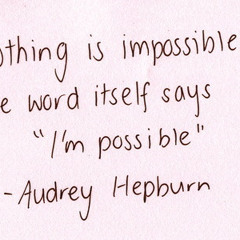 othing is impossible
e word itself says
"I'm possible"
- Audrey Hepburn